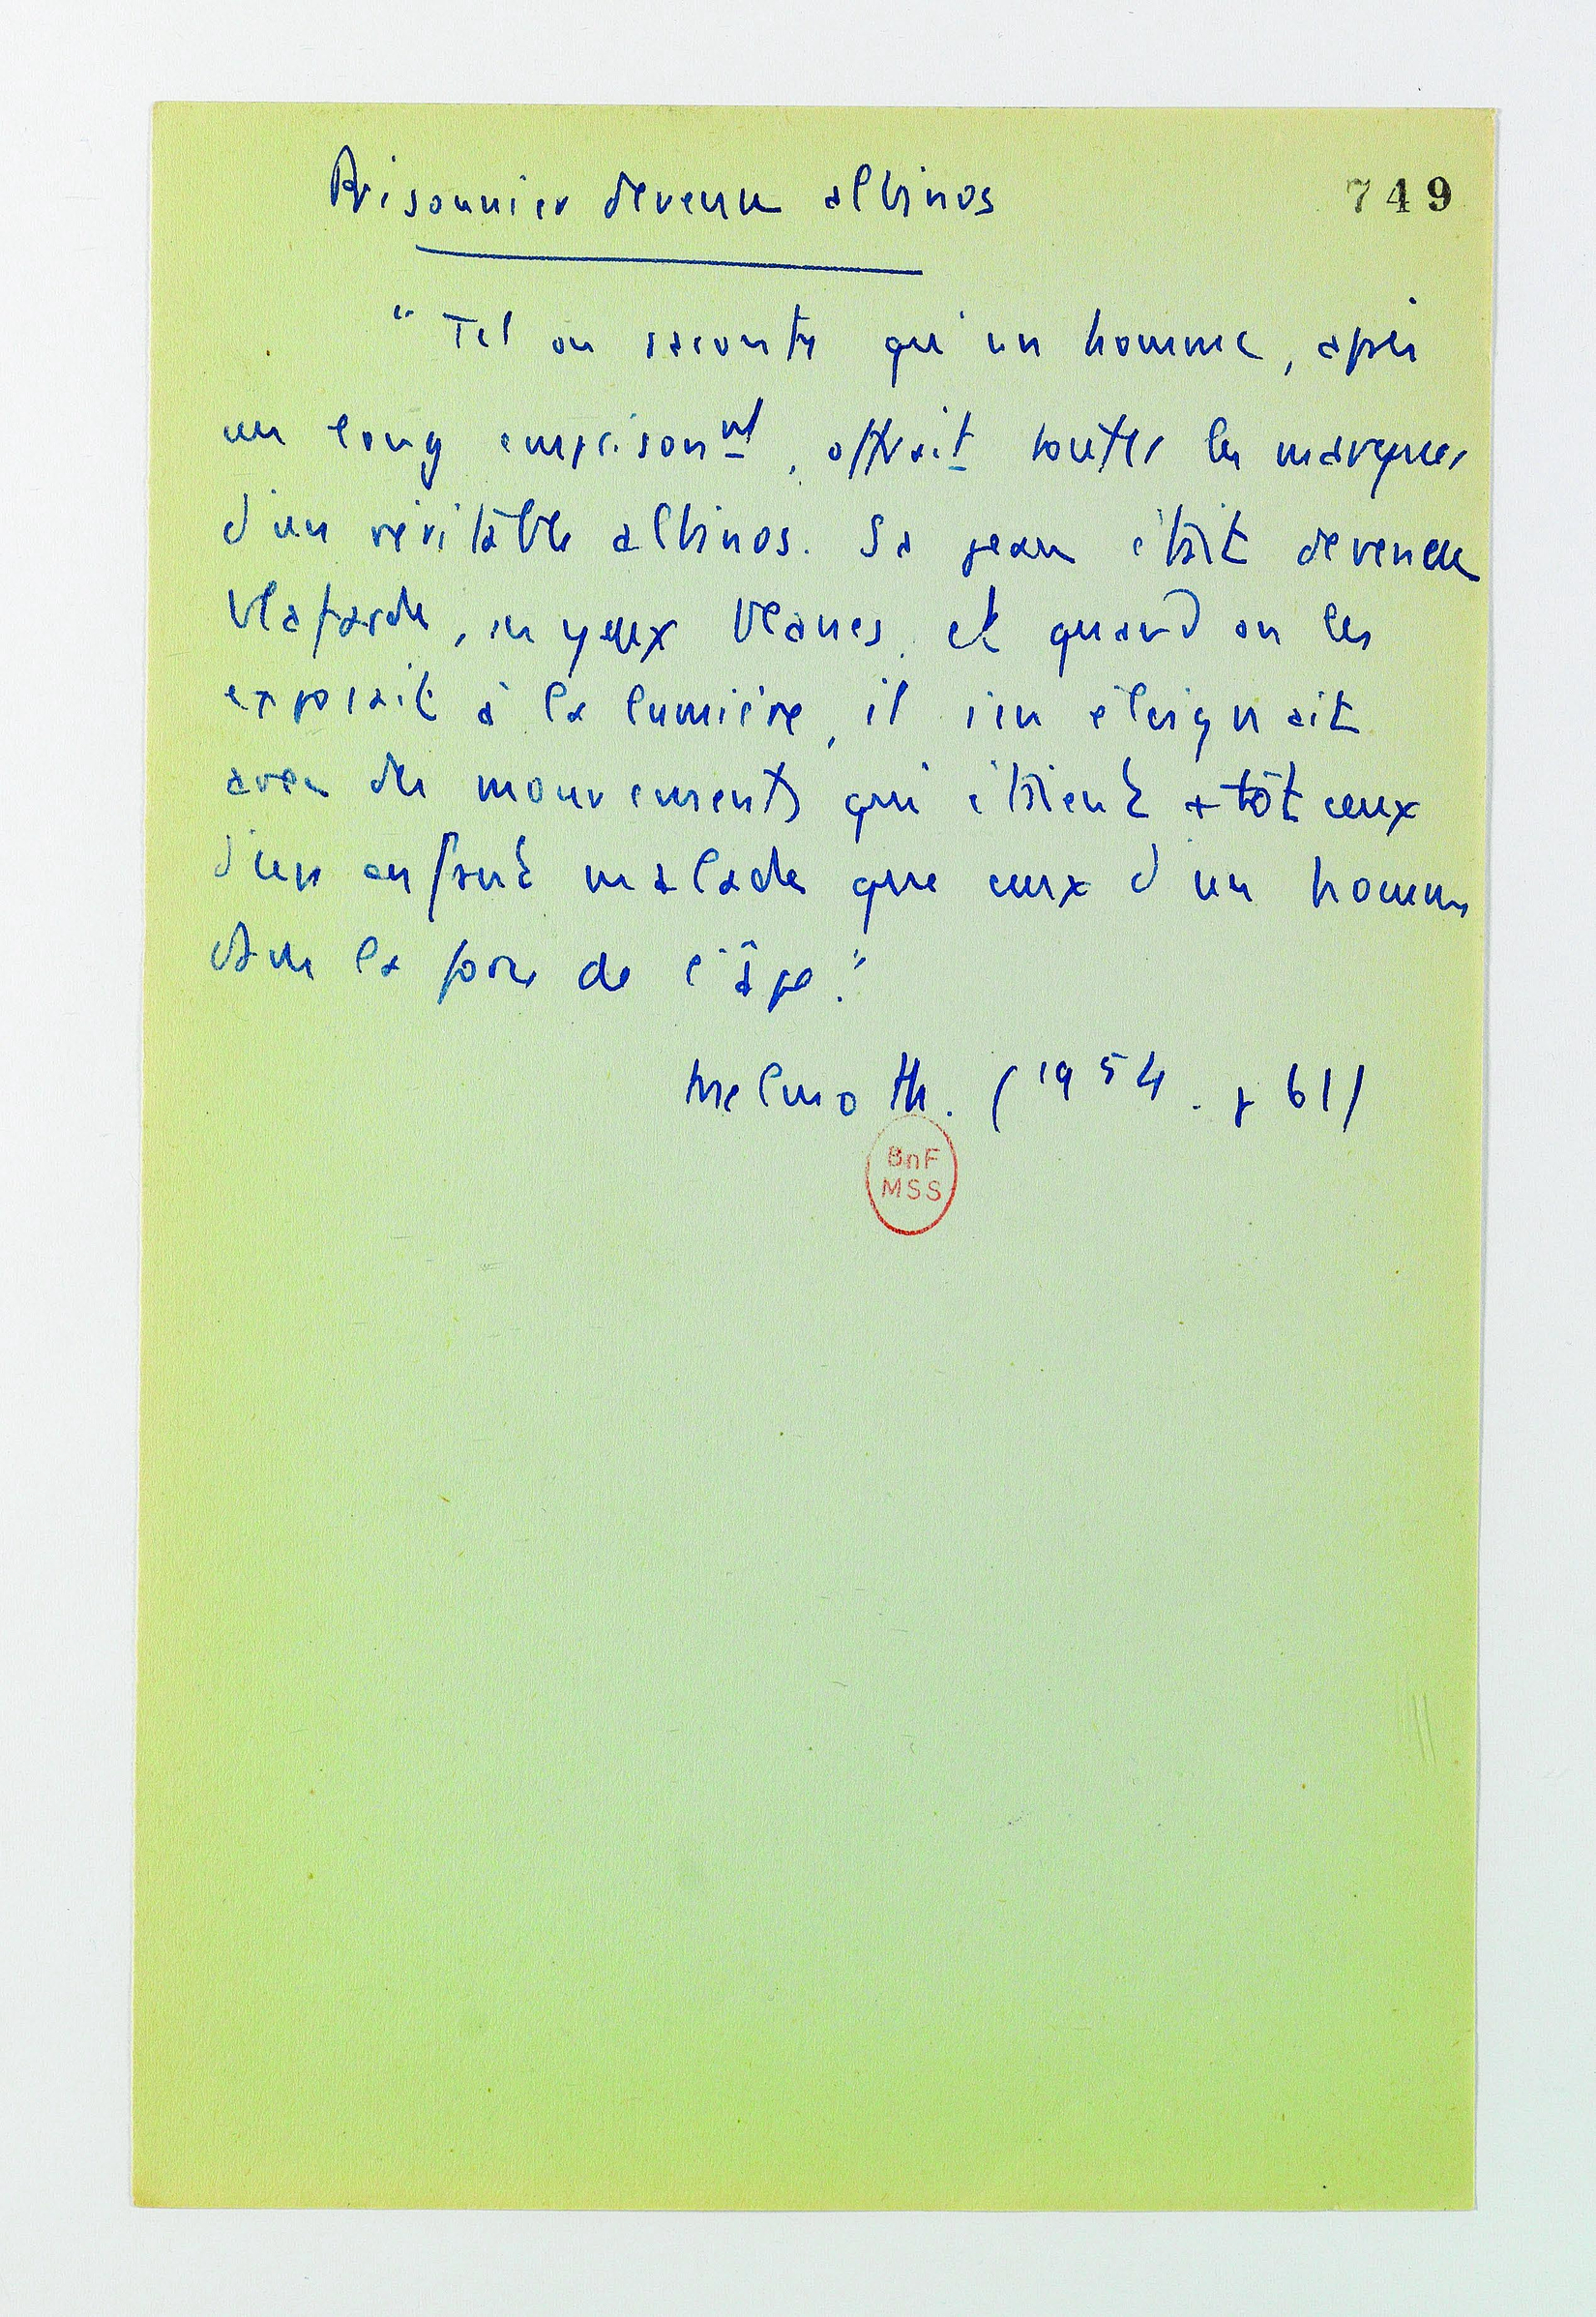 Prisonnier devenu albinos
749
" Tel on raconte qu'un homme, après
un long emprisonnt, offrait toutes les marques
d'un véritable albinos. Sa peau était devenue
blafarde, ses yeux blancs, et quand on les
exposait à la lumière, il s'en éloignait
avec des mouvements qui étaient + tôt ceux
d'un enfant malade que ceux d'un homme
dans la force de l'âge."
Melmoth. (1954. p 61)
BnF
MSS